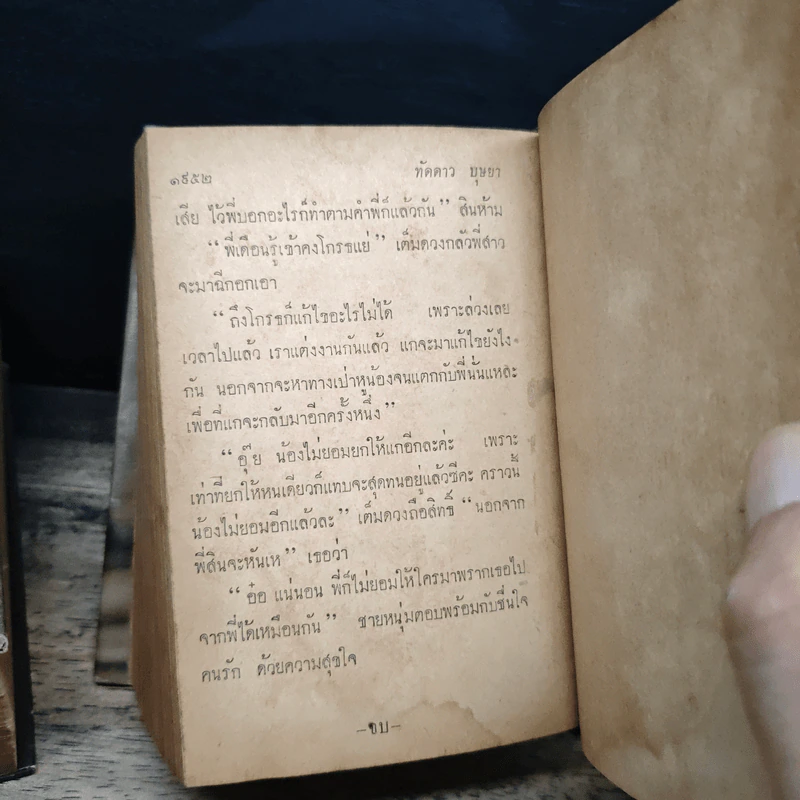 ๑๙๕๒ ทัดดาว บุษยา
เสีย ไว้พี่บอกอะไรก็ทำตามคำพี่ก็แล้วกัน” สินห้าม
“พี่เดือนรู้เข้าคงโกรธแย่” เต็มดวงกลัวพี่สาว
จะมาฉีกอกเอา
“ถึงโกรธก็แก้ไขอะไรไม่ได้ เพราะล่วงเลย
เวลาไปแล้ว เราแต่งงานกันแล้ว แกจะมาแก้ไขยังไง
กัน นอกจากจะหาทางเป่าหูน้องจนแตกกับพี่นั่นแหละ
เพื่อที่แกจะกลับมาอีกครั้งหนึ่ง”
“อุ๊ย น้องไม่ยอมยกให้แกอีกละค่ะ เพราะ
เท่าที่ยกให้หนเดียวก็แทบจะสุดทนอยู่แล้วซีคะ คราวนี้
น้องไม่ยอมอีกแล้วละ” เต็มดวงถือสิทธิ์ “นอกจาก
พี่สินจะหันเห” เธอว่า
“อ๋อ แน่นอน พี่ก็ไม่ยอมให้ใครมาพรากเธอไป
จากพี่ได้เหมือนกัน” ชายหนุ่มตอบพร้อมกับชื่นใจ
คนรัก ด้วยความสุขใจ
–จบ–